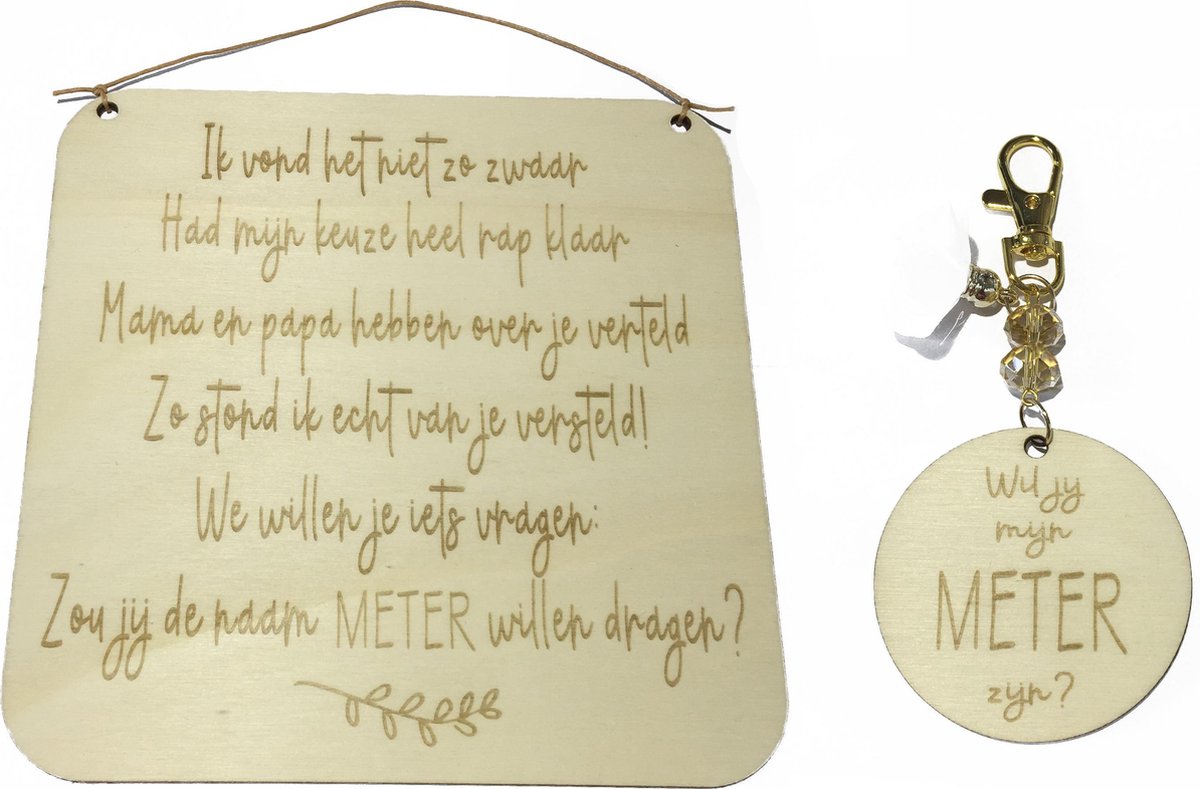 Ik vond het niet zo zwaar
Had mijn keuze heel rap klaar
Mama en papa hebben over je verteld
Zo stond ik echt van je versteld!
We willen je iets vragen:
Zou jij de naam METER willen dragen?
Wil jij
mijn
METER
zijn?